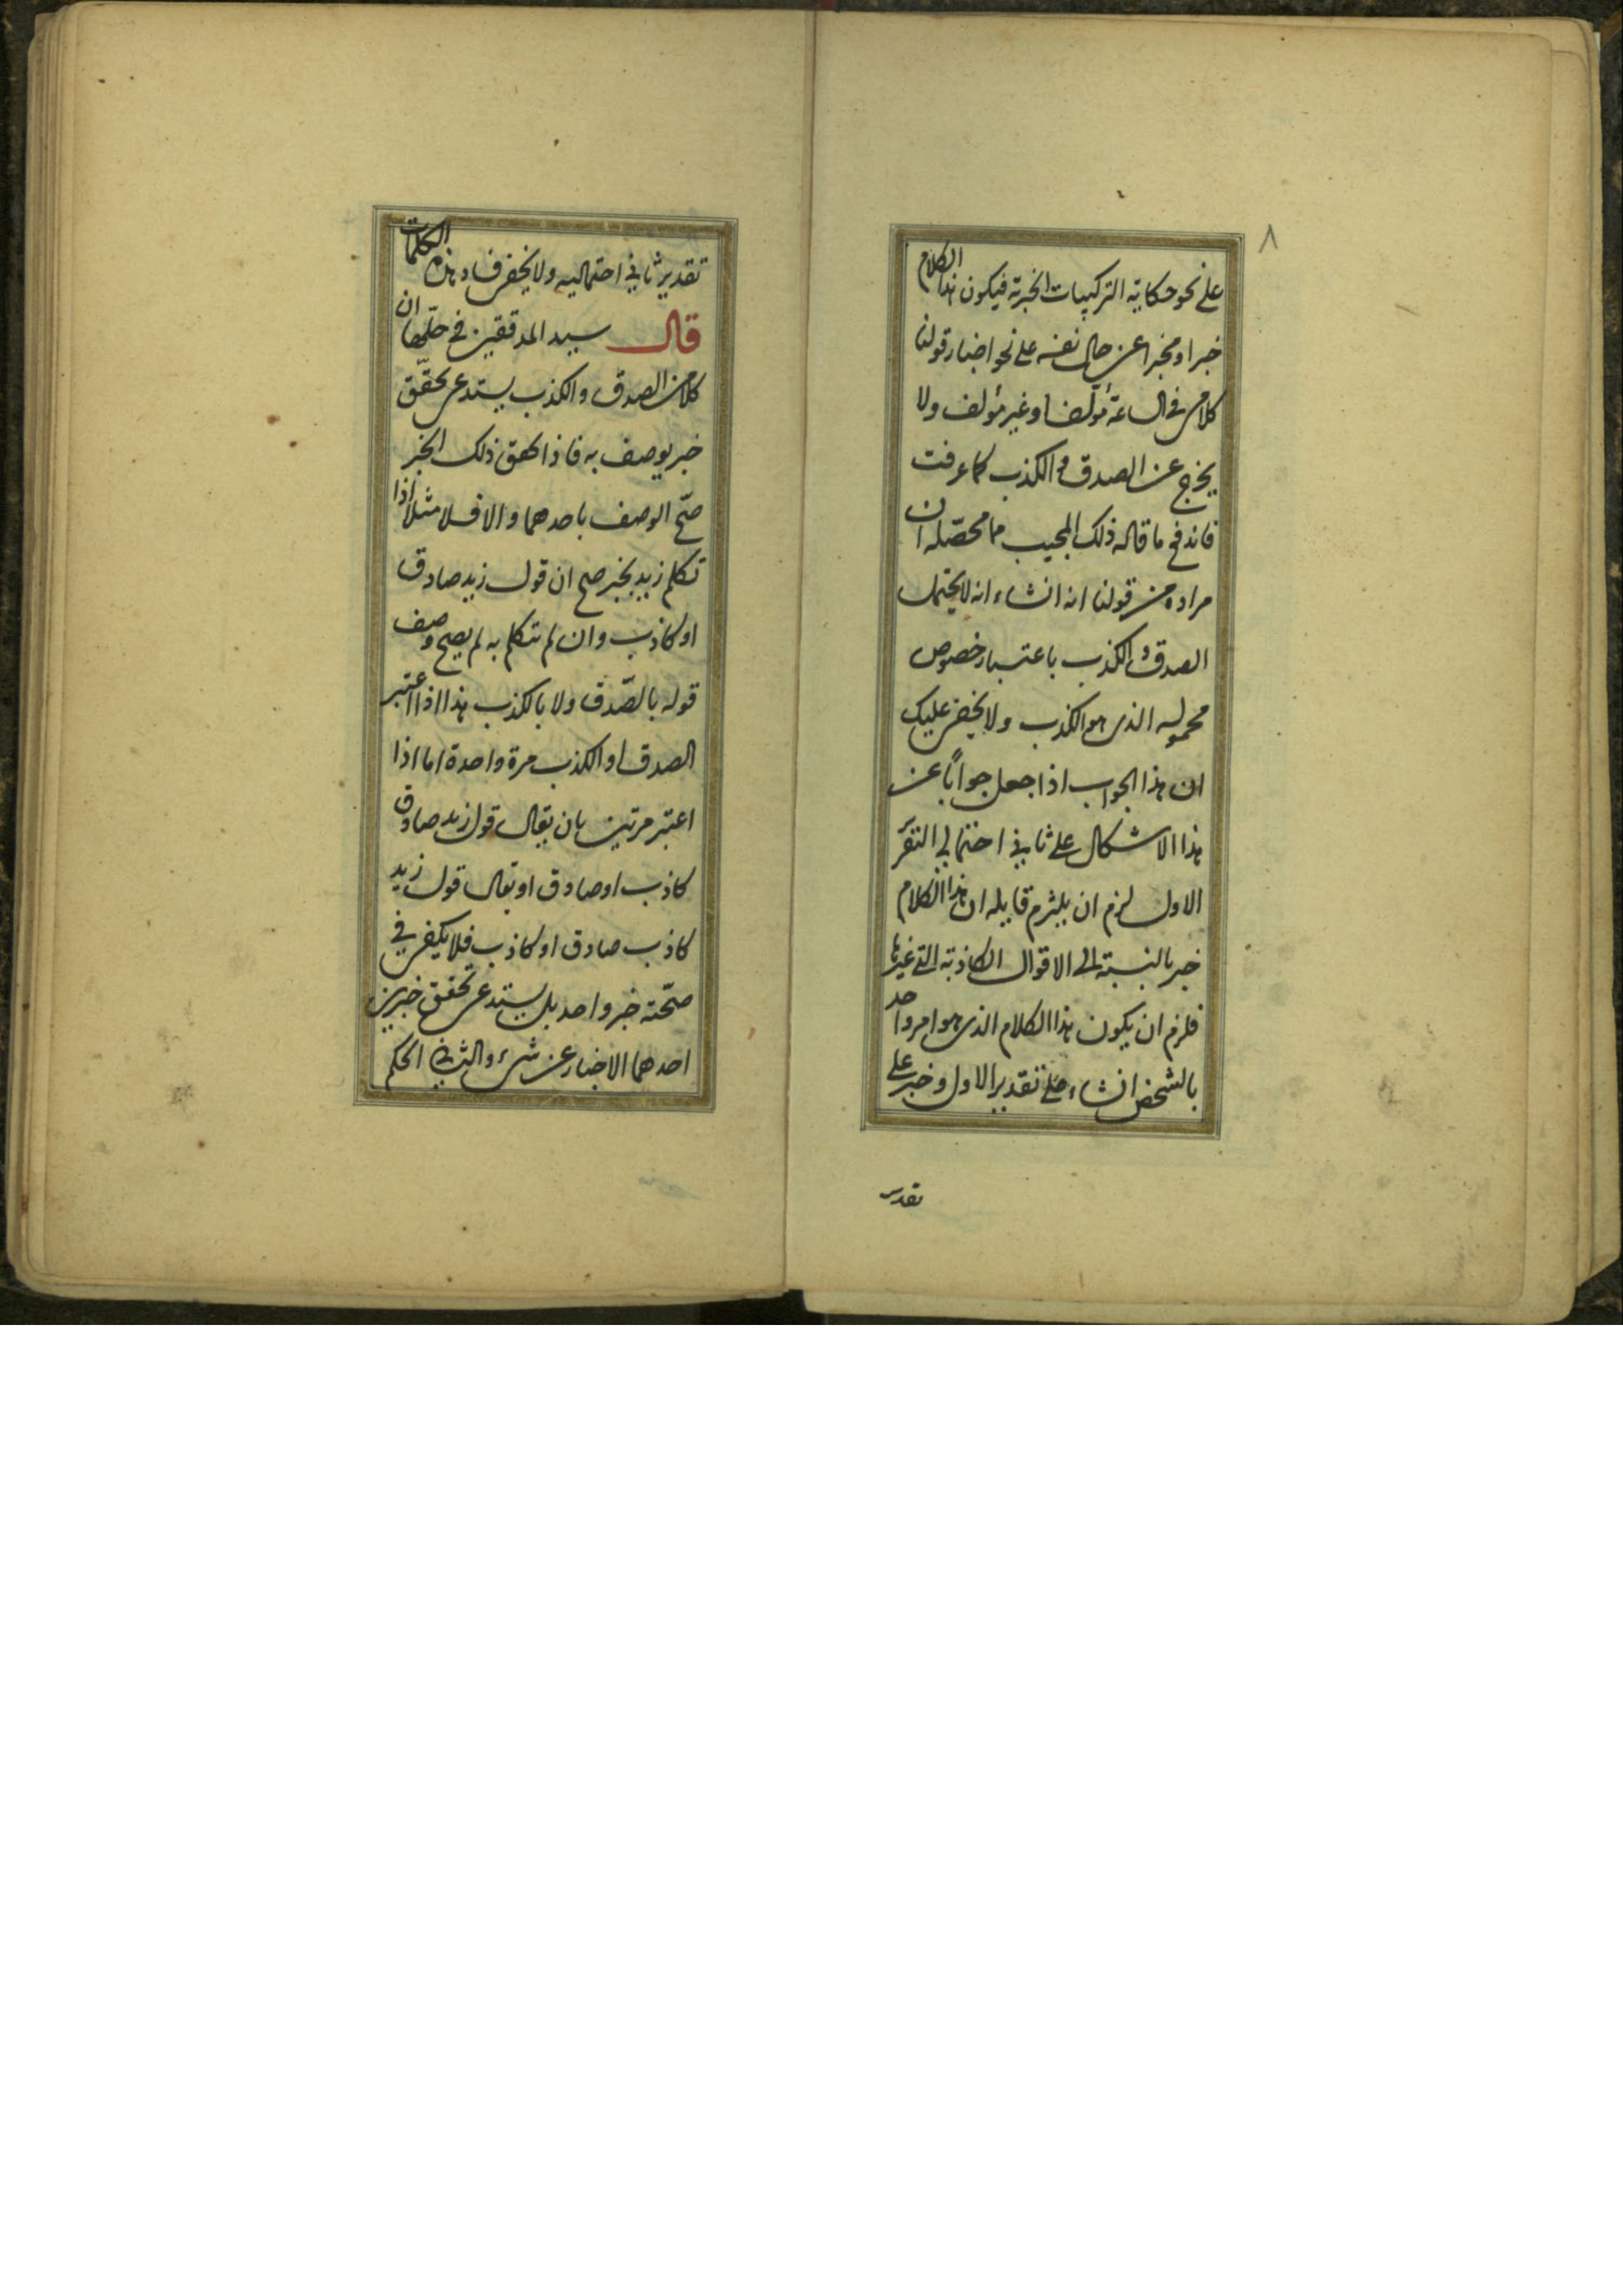 ٨
على نحو حكاية التركيبات الخبرية فيكون هذا الكلام
خبرا ومخبرا عن حال نفسه على نحو اخبار قولنا
كلامى فى الساعة مؤلف او غير مؤلف ولا
يخرج عن الصدق و الكذب كما عرفت
فاندفع ما قاله ذلك المجيب مما محصّله ان
مراده من قولنا انه انشاء انه لا يحتمل
الصدق و الكذب باعتبار خصوص
محموله الذى هو الكذب ولا يخفى عليك
ان هذا الجواب اذا جعل جوابًا عن
هذا الاشكال على ثانى احتمالى التقر
الاول لزم ان يلتزم قايله ان هذا الكلام
خبر بالنسبة الى الاقوال الكاذبة التى غيرها
فلزم ان يكون هذا الكلام الذى هو امر واحد
بالشخص انشاء على تقدير الاول وخبر على
تقدير
تقدير ثانى احتماليه ولا يخفى فساد هذه الكلمات
قال سيد المدققين فى حلّها ان
كلا من الصدق والكذب يستدعى تحقّق
خبر يوصف به فاذا تحقق ذلك الخبر
صحّ الوصف باحدهما والا فلا مثلا اذا
تكلم زيد بخبر صح ان قول زيد صادق
او كاذب وان لم تتكلم به لم يصح وصف
قوله بالصّدق ولا بالكذب هذا اذا اعتبر
الصدق او الكذب مرة واحدة اما اذا
اعتبر مرتين بان يقال قول زيد صادق
كاذب او صادق او يقال قول زيد
كاذب صادق او كاذب فلا يكفى فى
صحّته خبر واحد بل يستدعى تحقق خبرين
احدهما الاخبار عن شىء والثانى الحكم